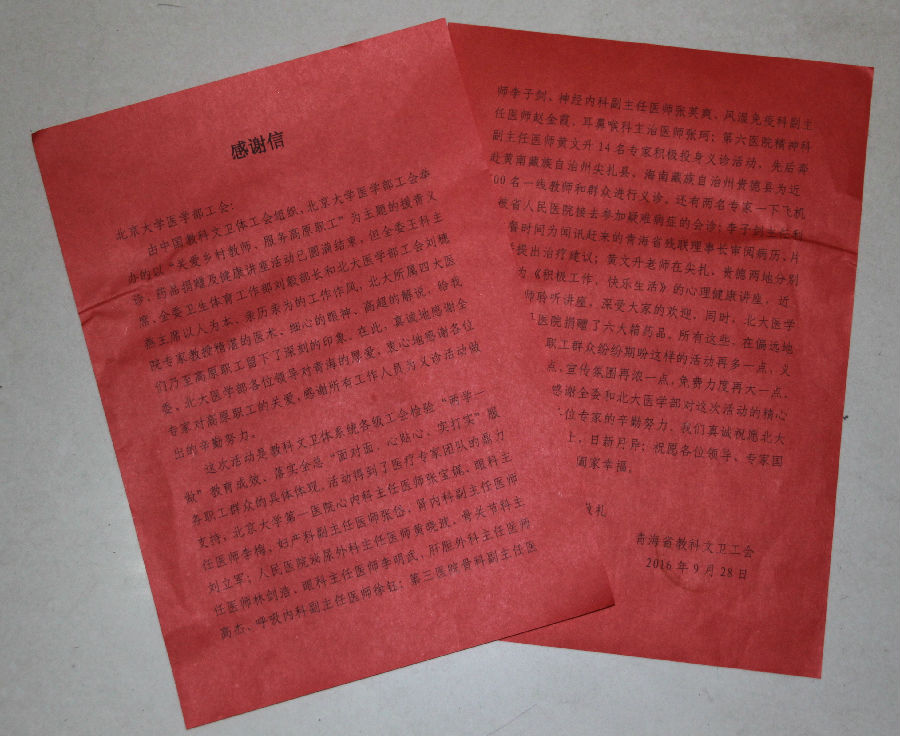 感谢信
北京大学医学部工会：
由中国教科文卫体工会组织，北京大学医学部工会举
办的以“关爱乡村教师、服务高原职工”为主题的援青义
诊、药品捐赠及健康讲座活动已圆满结束，但全委王科主
席、全委卫生体育工作部刘毅部长和北大医学部工会刘穗
燕主席以人为本、亲历亲为的工作作风，北大所属四大医
院专家教授精湛的医术、细心的眼神、高超的解说，给我
们乃至高原职工留下了深刻的印象。在此，真诚地感谢全
委、北大医学部各位领导对青海的厚爱，衷心地感谢各位
专家对高原职工的关爱，感谢所有工作人员为义诊活动做
出的辛勤努力。
这次活动是教科文卫体系统各级工会检验“两学一
做”教育成效、落实全总“面对面、心贴心、实打实”服
务职工群众的具体体现，活动得到了医疗专家团队的鼎力
支持，北京大学第一医院心内科主任医师张宝娓、眼科主
任医师李梅，妇产科副主任医师张岱，肾内科副主任医师
刘立军；人民医院泌尿外科主任医师黄晓波，骨关节科主
任医师林剑浩、眼科主任医师李明武，肝胆外科主任医师
高杰、呼吸内科副主任医师徐钰；第三医院骨科副主任医
师李子剑、神经内科副主任医师张英爽、风湿免疫科副主
任医师赵金霞，耳鼻喉科主治医师张珂；第六医院精神科
副主任医师黄文升14名专家积极投身义诊活动，先后奔
赴黄南藏族自治州尖扎县、海南藏族自治州贵德县为近
00名一线教师和群众进行义诊。还有两名专家一下飞机
被省人民医院接去参加疑难病症的会诊；李子剑主任利
餐时间为闻讯赶来的青海省残联理事长审阅病历、片
提出治疗建议；黄文升老师在尖扎、贵德两地分别
为《积极工作、快乐生活》的心理健康讲座，近
师聆听讲座，深受大家的欢迎。同时，北大医学
医院捐赠了六大箱药品。所有这些，在偏远地
职工群众纷纷期盼这样的活动再多一点，义
点，宣传氛围再浓一点，免费力度再大一点。
感谢全委和北大医学部对这次活动的精心
位专家的辛勤努力。我们真诚祝愿北大
上，日新月异；祝愿各位领导、专家国
阖家幸福。
敬礼
青海省教科文卫工会
2016年9月28日